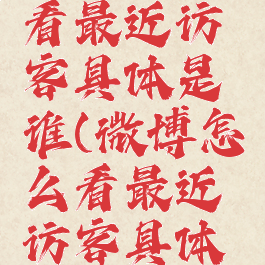 看最近访
客具体是
谁(微博怎
么看最近
访客具体